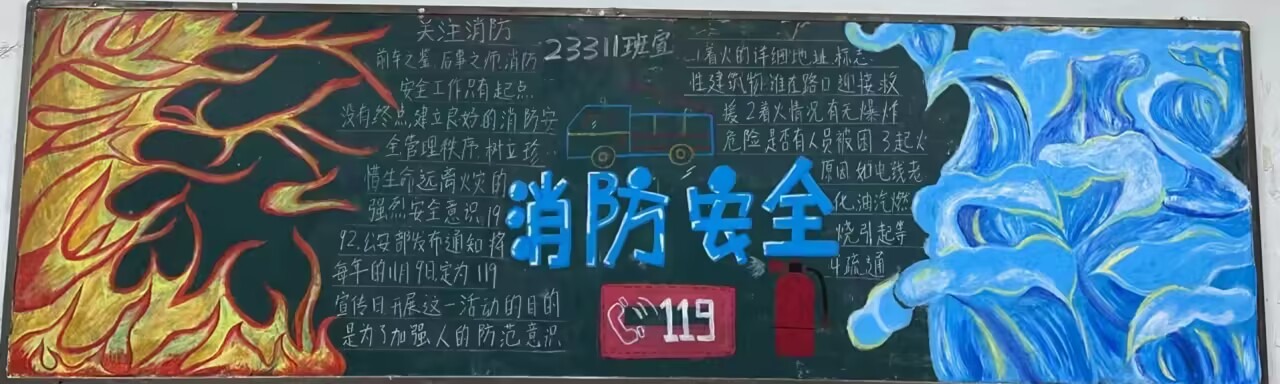 关注消防
前车之鉴 后事之师 消防
安全工作只有起点
没有终点,建立良好的消防安
全管理秩序,树立珍
惜生命远离火灾的
强烈安全意识 19
92.公安部发布通知 将
每年的11月9日定为119
宣传日开展这一活动的目的
是为了加强人的防范意识
23311班宣
消防安全
119
1着火的详细地址.标志
性建筑物.谁在路口迎接救
援 2着火情况有无爆炸
危险是否有人员被困 3起火
原因如电线老
化.油汽燃
烧引起等
4疏通